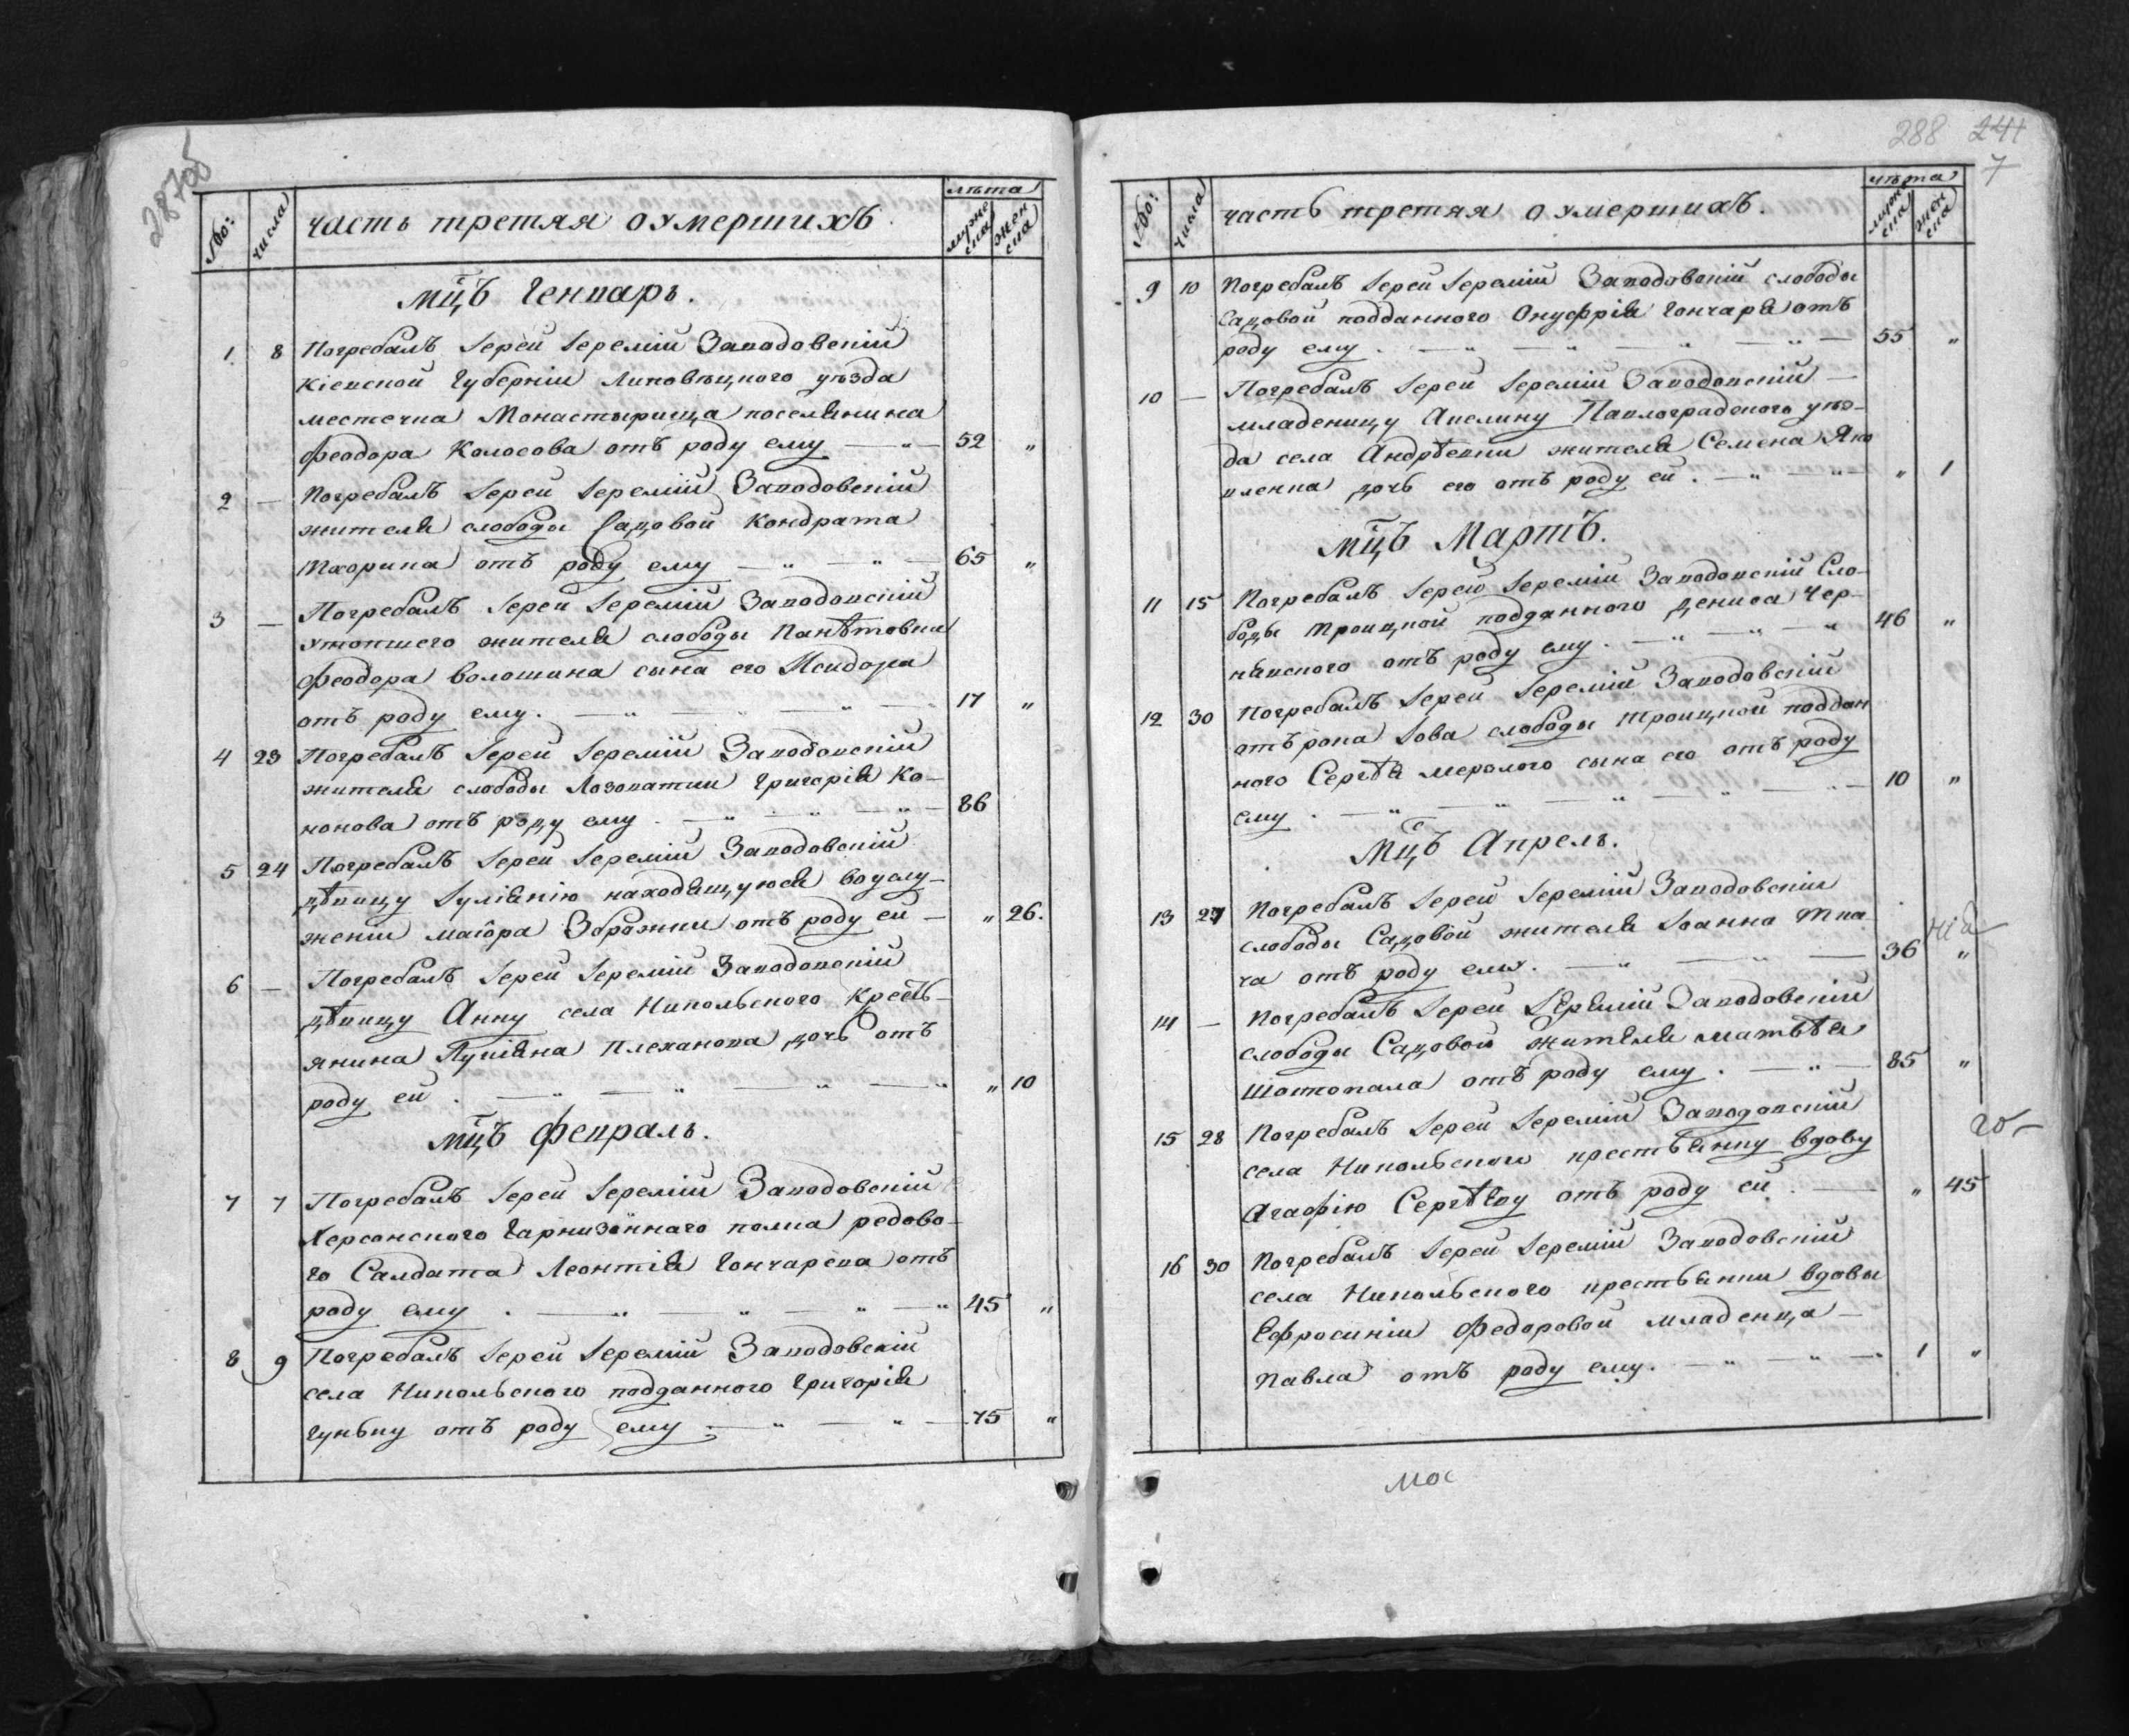 287об
№: числа часть третяя о умершихъ лѣта мужеска женска
мцъ Генварь.
1 8 Погребалъ Іерей Іеремій Заводовскій
Кіевской Губерніи Липовецкого уѣзда
местечка Монастырища поселянина
Феодора Колосова отъ роду ему 52 "
2 — Погребалъ Іерей Іеремій Заводовскій
жителя слободы Садовой Кондрата
Тхорика отъ роду ему 65 "
3 — Погребалъ Іерей Іеремій Заводовскій
утопшего жителя слободы
Феодора Волошина сына его Исидора
отъ роду ему. 17 "
4 23 Погребалъ Іерей Іеремій Заводовскій
жителя слободы Лозоватки Григорія Ко-
нонова отъ роду ему. 86
5 24 Погребалъ Іерей Іеремій Заводовскій
дѣвицу Іуліянію находящуюся во услу-
женіи маіора Збрашки отъ роду ей — " 26.
6 — Погребалъ Іерей Іеремій Заводовскій
дѣвицу Анну села Никольского Кресть-
янина Плеханова дочь отъ
роду ей. " 10
мцъ Февраль.
7 7 Погребалъ Іерей Іеремій Заводовскій
Херсонского Гарнизоннаго полка редово-
го Салдата Леонтія Гончарева отъ
роду ему. 45 "
8 9 Погребалъ Іерей Іеремій Заводовскій
села Никольского подданного Григорія
Гуньку отъ роду ему 75 "
288 241
7
№: числа часть третяя о умершихъ. лѣта мужеска женска
9 10 Погребалъ Іерей Іеремій Заводовскій слободы
Садовой подданного Онуфрія Гончаря отъ
роду ему. 55 "
10 — Погребалъ Іерей Іеремій Заводовскій —
младеницу Акелину Павлоградского уѣз-
да села Андрѣевки жителя Семена Яко
вленка дочь его отъ роду ей. " 1
мцъ Мартъ.
11 15 Погребалъ Іерей Іеремій Заводовскій Сло-
боды Троицкой подданного Дениса Чер-
нявского отъ роду ему. 46 "
12 30 Погребалъ Іерей Іеремій Заводовскій
отърока Іова слободы Троицкой поддан
ного Сергѣя мерзлого сына его отъ роду
ему. 10 "
Мцъ Апрель.
13 27 Погребалъ Іерей Іеремій Заводовскій
слободы Садовой жителя Іоанна Тка
ча отъ роду ему. 36 "
14 — Погребалъ Іерей Іеремій Заводовскій
слободы Садовой жителя матвѣя
Шаповала отъ роду ему. 85 "
15 28 Погребалъ Іерей Іеремій Заводовскій
села Никольского крестьянку вдову
Агафію Сергѣеву отъ роду ей. " 45
16 30 Погребалъ Іерей Іеремій Заводовскій
села Никольского крестьянки вдовы
Ефросиніи Федоровой младенца —
Павла отъ роду ему. 1 "
мос